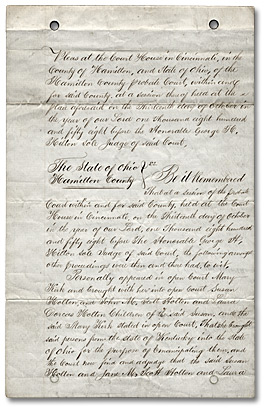 Pleas at the Court House in Cincinnati, in the
County of Hamilton, and State of Ohio, of the
Hamilton County Probate Court, within and
for said County, at a session thereof held at the
place aforesaid on the Thirteenth day of October in
the year of our Lord one Thousand eight hundred
and fifty eight before the Honorable George H.
Hilton Sole Judge of said Court,
The State of Ohio
Hamilton County } ss
Be it Remembered
That at a session of the probate
Court within and for said County, held at the Court
House in Cincinnati, on the Thirteenth day of October
in the year of our Lord, one Thousand eight hundred
and fifty eight before The Honorable George H.
Hilton Sole Judge of said Court, the following amongst
other proceedings were then and there had, to wit,
Personally appeared in open Court Mary
Kirk and brought with her into open Court Susan
Holton, and John M. Scott Holton and Laura
Dorcas Holton Children of the said Susan, and
the said Mary Kirk stated in open Court, That she brought
said persons from the State of Kentucky into the State
of Ohio for the purpose of Emancipating them, and
the Court now find and adjudge that the said Susan
Holton and M. Scott Holton and Laura